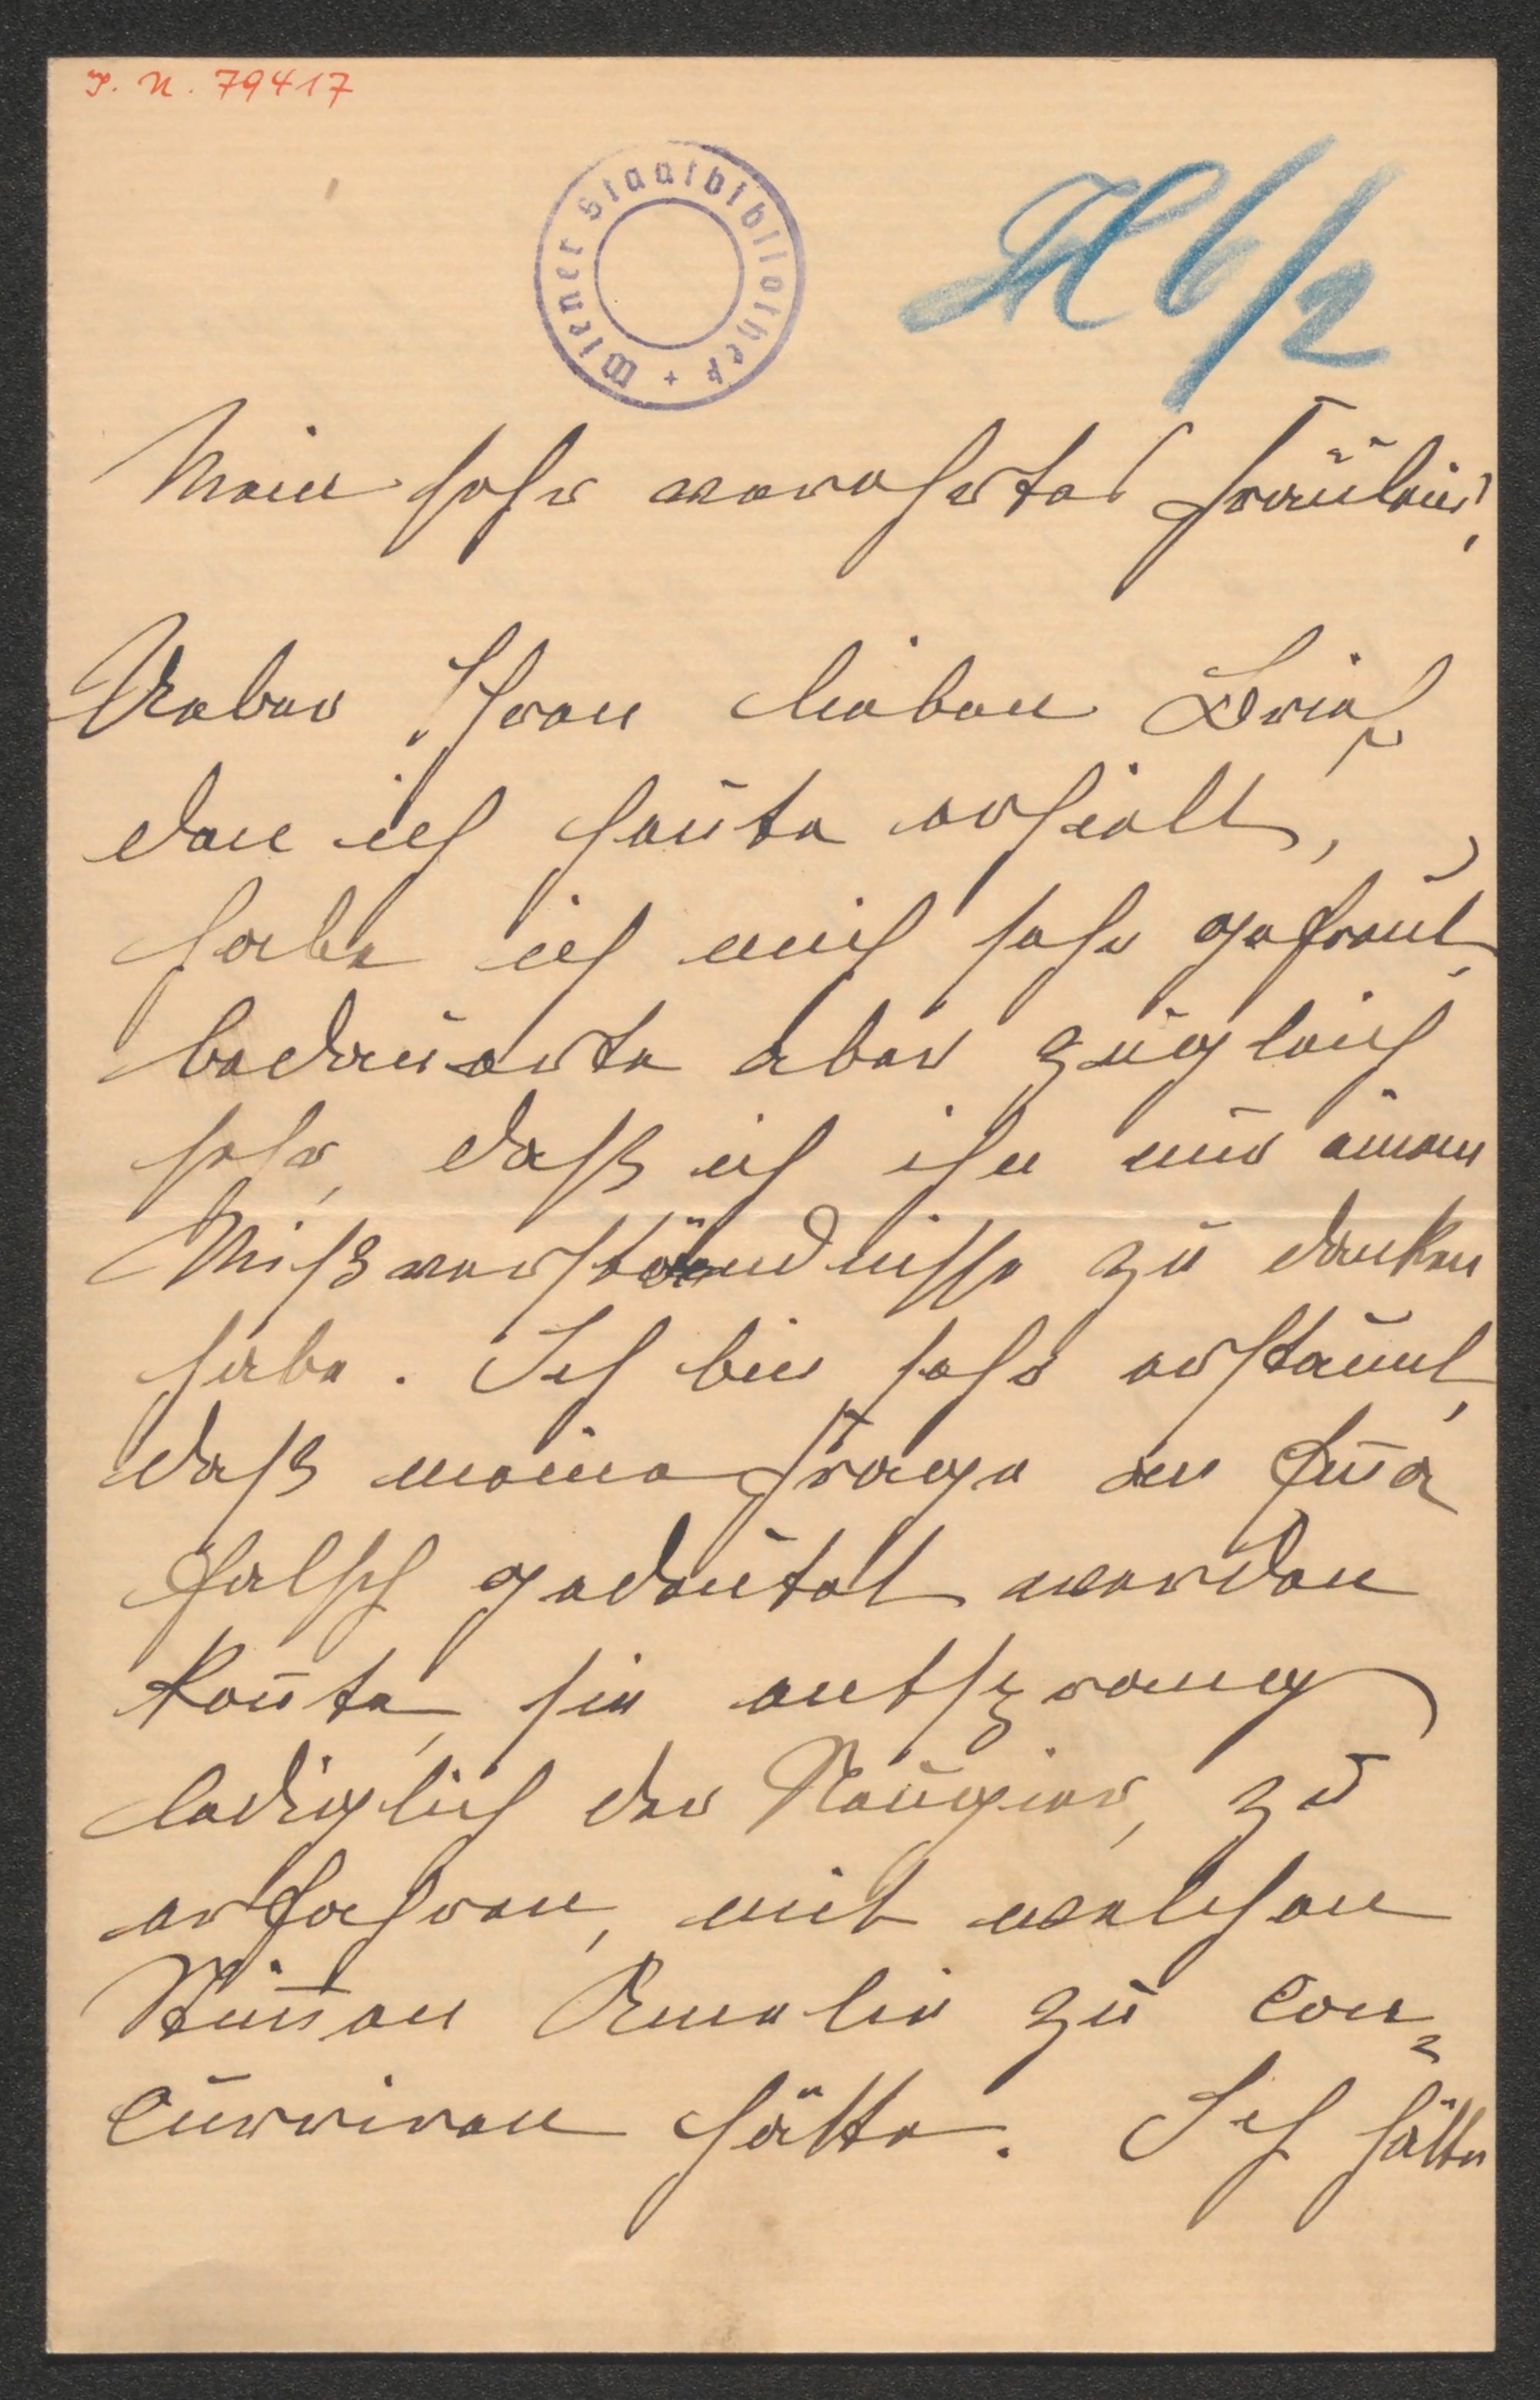 I. N. 79417
Wiener Stadtbibliothek +
Mein sehr verehrtes Fräulein!
Ueber Ihren lieben Brief,
den ich heute erhielt,
habe ich mich sehr gefreut,
bedauerte aber zugleich
sehr, daß ich ihn nur einem
Mißverständnisse zu danken
habe. Ich bin sehr erstaunt,
daß meine Frage an
falsch gedeutet werden
kon̄te, sie entsprang
lediglich der Neugier, zu
erfahren, mit welchen
Stim̄en Amalie zu con-
curriren hätte. Ich hätte